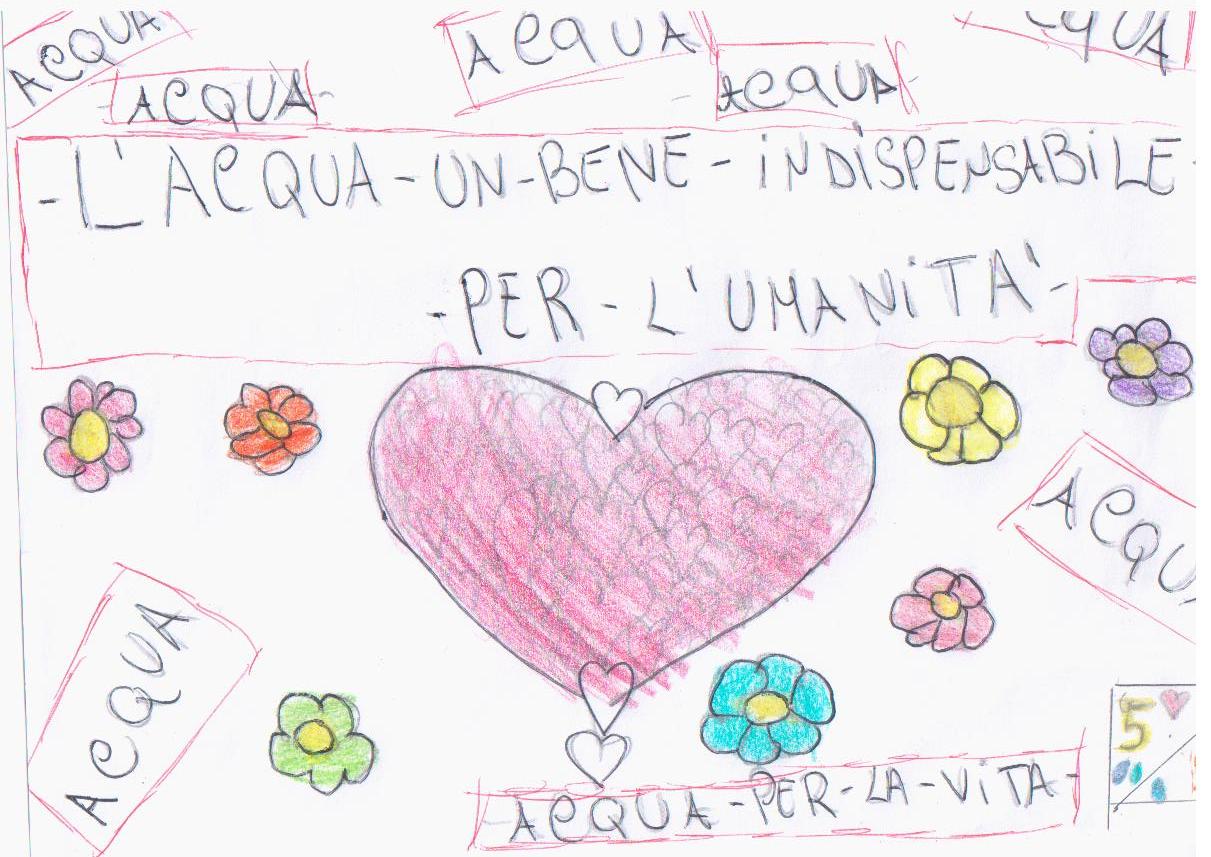 ACQUA
ACQUA
ACQUA
ACQUA
CQUA
-L'ACQUA-UN-BENE-iNDiSPENSABiLE-
-PER-L'UMANiTA'-
ACQU
ACQUA
5
-ACQUA-PER-LA-ViTA-